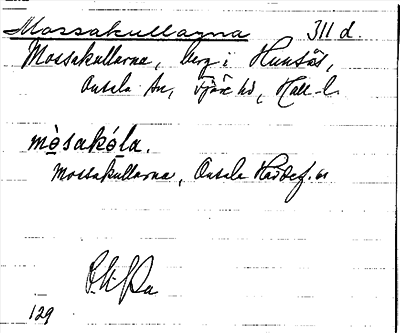 Mossakullarna 311 d.
Mossakullarna, berg i Hunsås,
Onsala sn, Fjäre hd, Hall. l.
mòsakóla.
Mossakullarna, Onsala
129